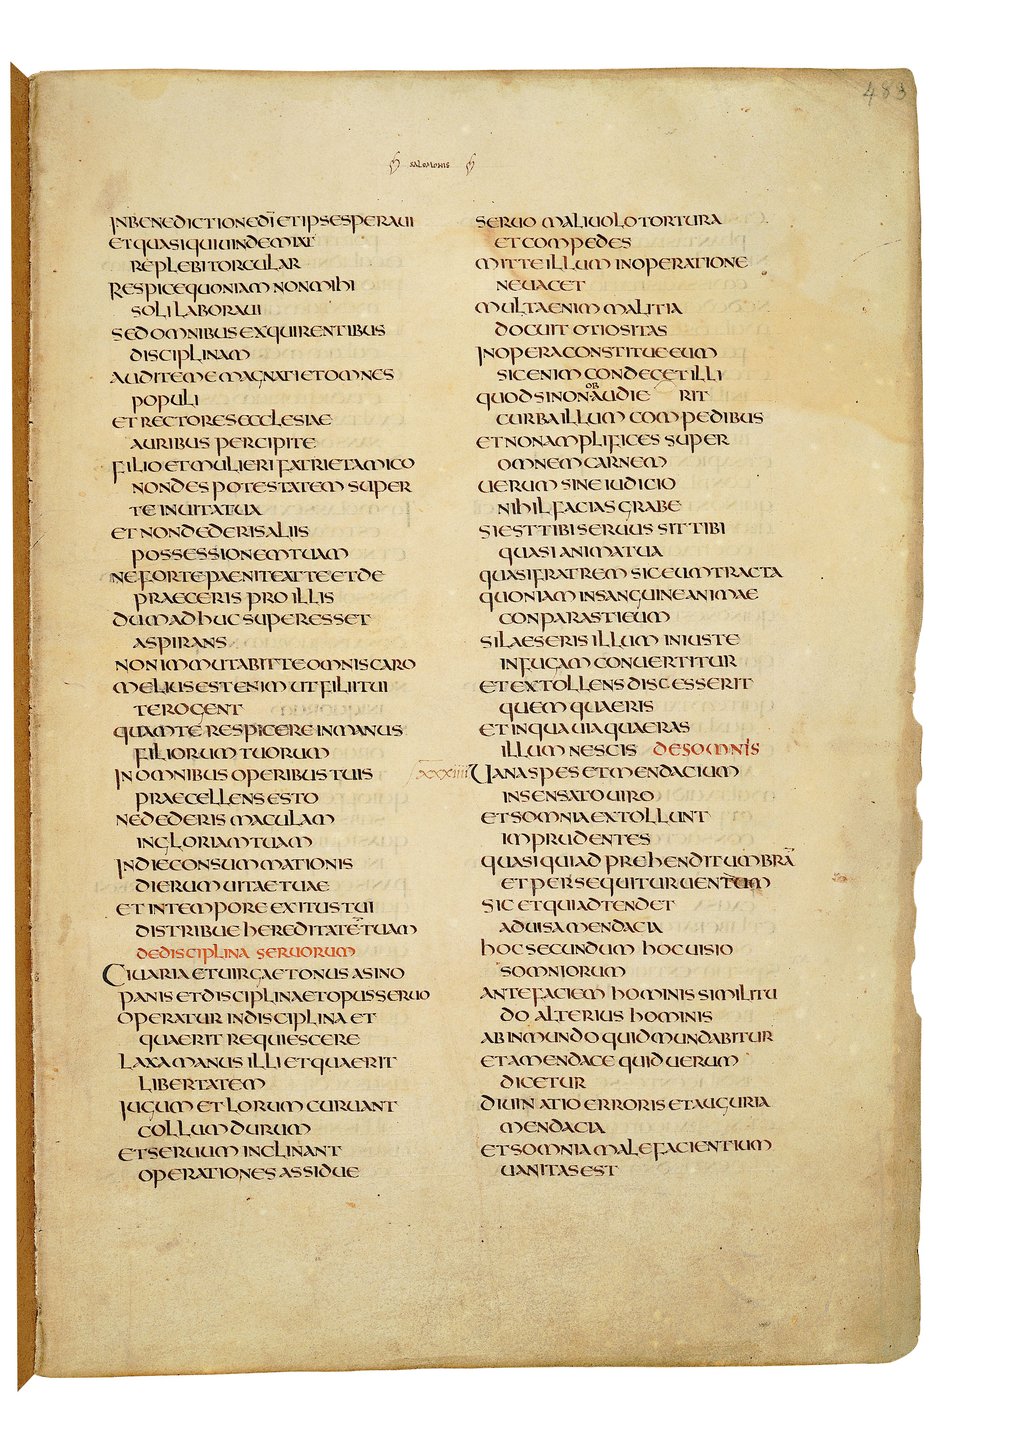 483
SALOMONIS
INBENEDICTIONEDI ETIPSESPERAUI
ETQUASIQUIUINDEMIAT
REPLEBITORCULAR
RESPICEQUONIAM NONMIHI
SOLILABORAUI
SEDOMNIBUSEXQUIRENTIBUS
DISCIPLINAM
AUDITEMEMAGNATIETOMNES
POPULI
ETRECTORESECCLESIAE
AURIBUS PERCIPITE
FILIOETMULIERI FATRIETAMICO
NONDESPOTESTATEM SUPER
TEINUITATUA
ETNONDEDERISALIIS
POSSESSIONEMTUAM
NEFORTEPAENITEATTEETDE
PRAECERIS PROILLIS
DUMADHUCSUPERESSET
ASPIRANS
NONIMMUTABITTEOMNISCARO
MELIUSESTENIM UTFILIITUI
TEROGENT
QUAMTERESPICEREINMANUS
FILIORUM TUORUM
INOMNIBUSOPERIBUSTUIS
PRAECELLENSESTO
NEDEDERIS MACULAM
INGLORIAMTUAM
INDIECONSUMMATIONIS
DIERUMUITAETUAE
ETINTEMPOREEXITUSTUI
DISTRIBUEHEREDITATE TUAM
DEDISCIPLINA SERUORUM
CIUARIAETUIRGAETONUSASINO
PANISETDISCIPLINAETOPUSSERUO
OPERATUR INDISCIPLINA ET
QUAERIT REQUIESCERE
LAXAMANUS ILLI ETQUAERIT
LIBERTATEM
IUGUM ETLORUM CURUANT
COLLUMDURUM
ETSERUUM INCLINANT
OPERATIONESASSIDUE
SERUO MALIUOLOTORTURA
ETCOMPEDES
MITTEILLUM INOPERATIONE
NEUACET
MULTAENIM MALITIA
DOCUIT OTIOSITAS
INOPERACONSTITUEEUM
SICENIM CONDECETILLI
QUODSINONOBAUDIE RIT
CURBAILLUM COMPEDIBUS
ETNONAMPLIFICES SUPER
OMNEMCARNEM
UERUM SINEIUDICIO
NIHILFACIASGRABE
SIESTTIBISERUUS SITTIBI
QUASIANIMATUA
QUASIFRATREM SICEUMTRACTA
QUONIAM INSANGUINEANIMAE
CONPARASTIEUM
SILAESERISILLUM INIUSTE
INFUGAM CONUERTITUR
ETEXTOLLENSDISCESSERIT
QUEM QUAERIS
ETINQUAUIAQUAERAS
ILLUM NESCIS DESOMNIS
XXXIIII UANASPES ETMENDACIUM
INSENSATOUIRO
ETSOMNIAEXTOLLUNT
IMPRUDENTES
QUASIQUIAD PREHENDITUMBRA
ETPERSEQUITURUENTUM
SIC ETQUIADTENDET
ADUISAMENDACIA
HOCSECUNDUM HOCUISIO
SOMNIORUM
ANTEFACIEM HOMINISSIMILITU
DO ALTERIUS HOMINIS
ABINMUNDOQUIDMUNDABITUR
ETAMENDACE QUIDUERUM
DICETUR
DIUINATIOERRORIS ETAUGURIA
MENDACIA
ETSOMNIAMALEFACIENTIUM
UANITASEST